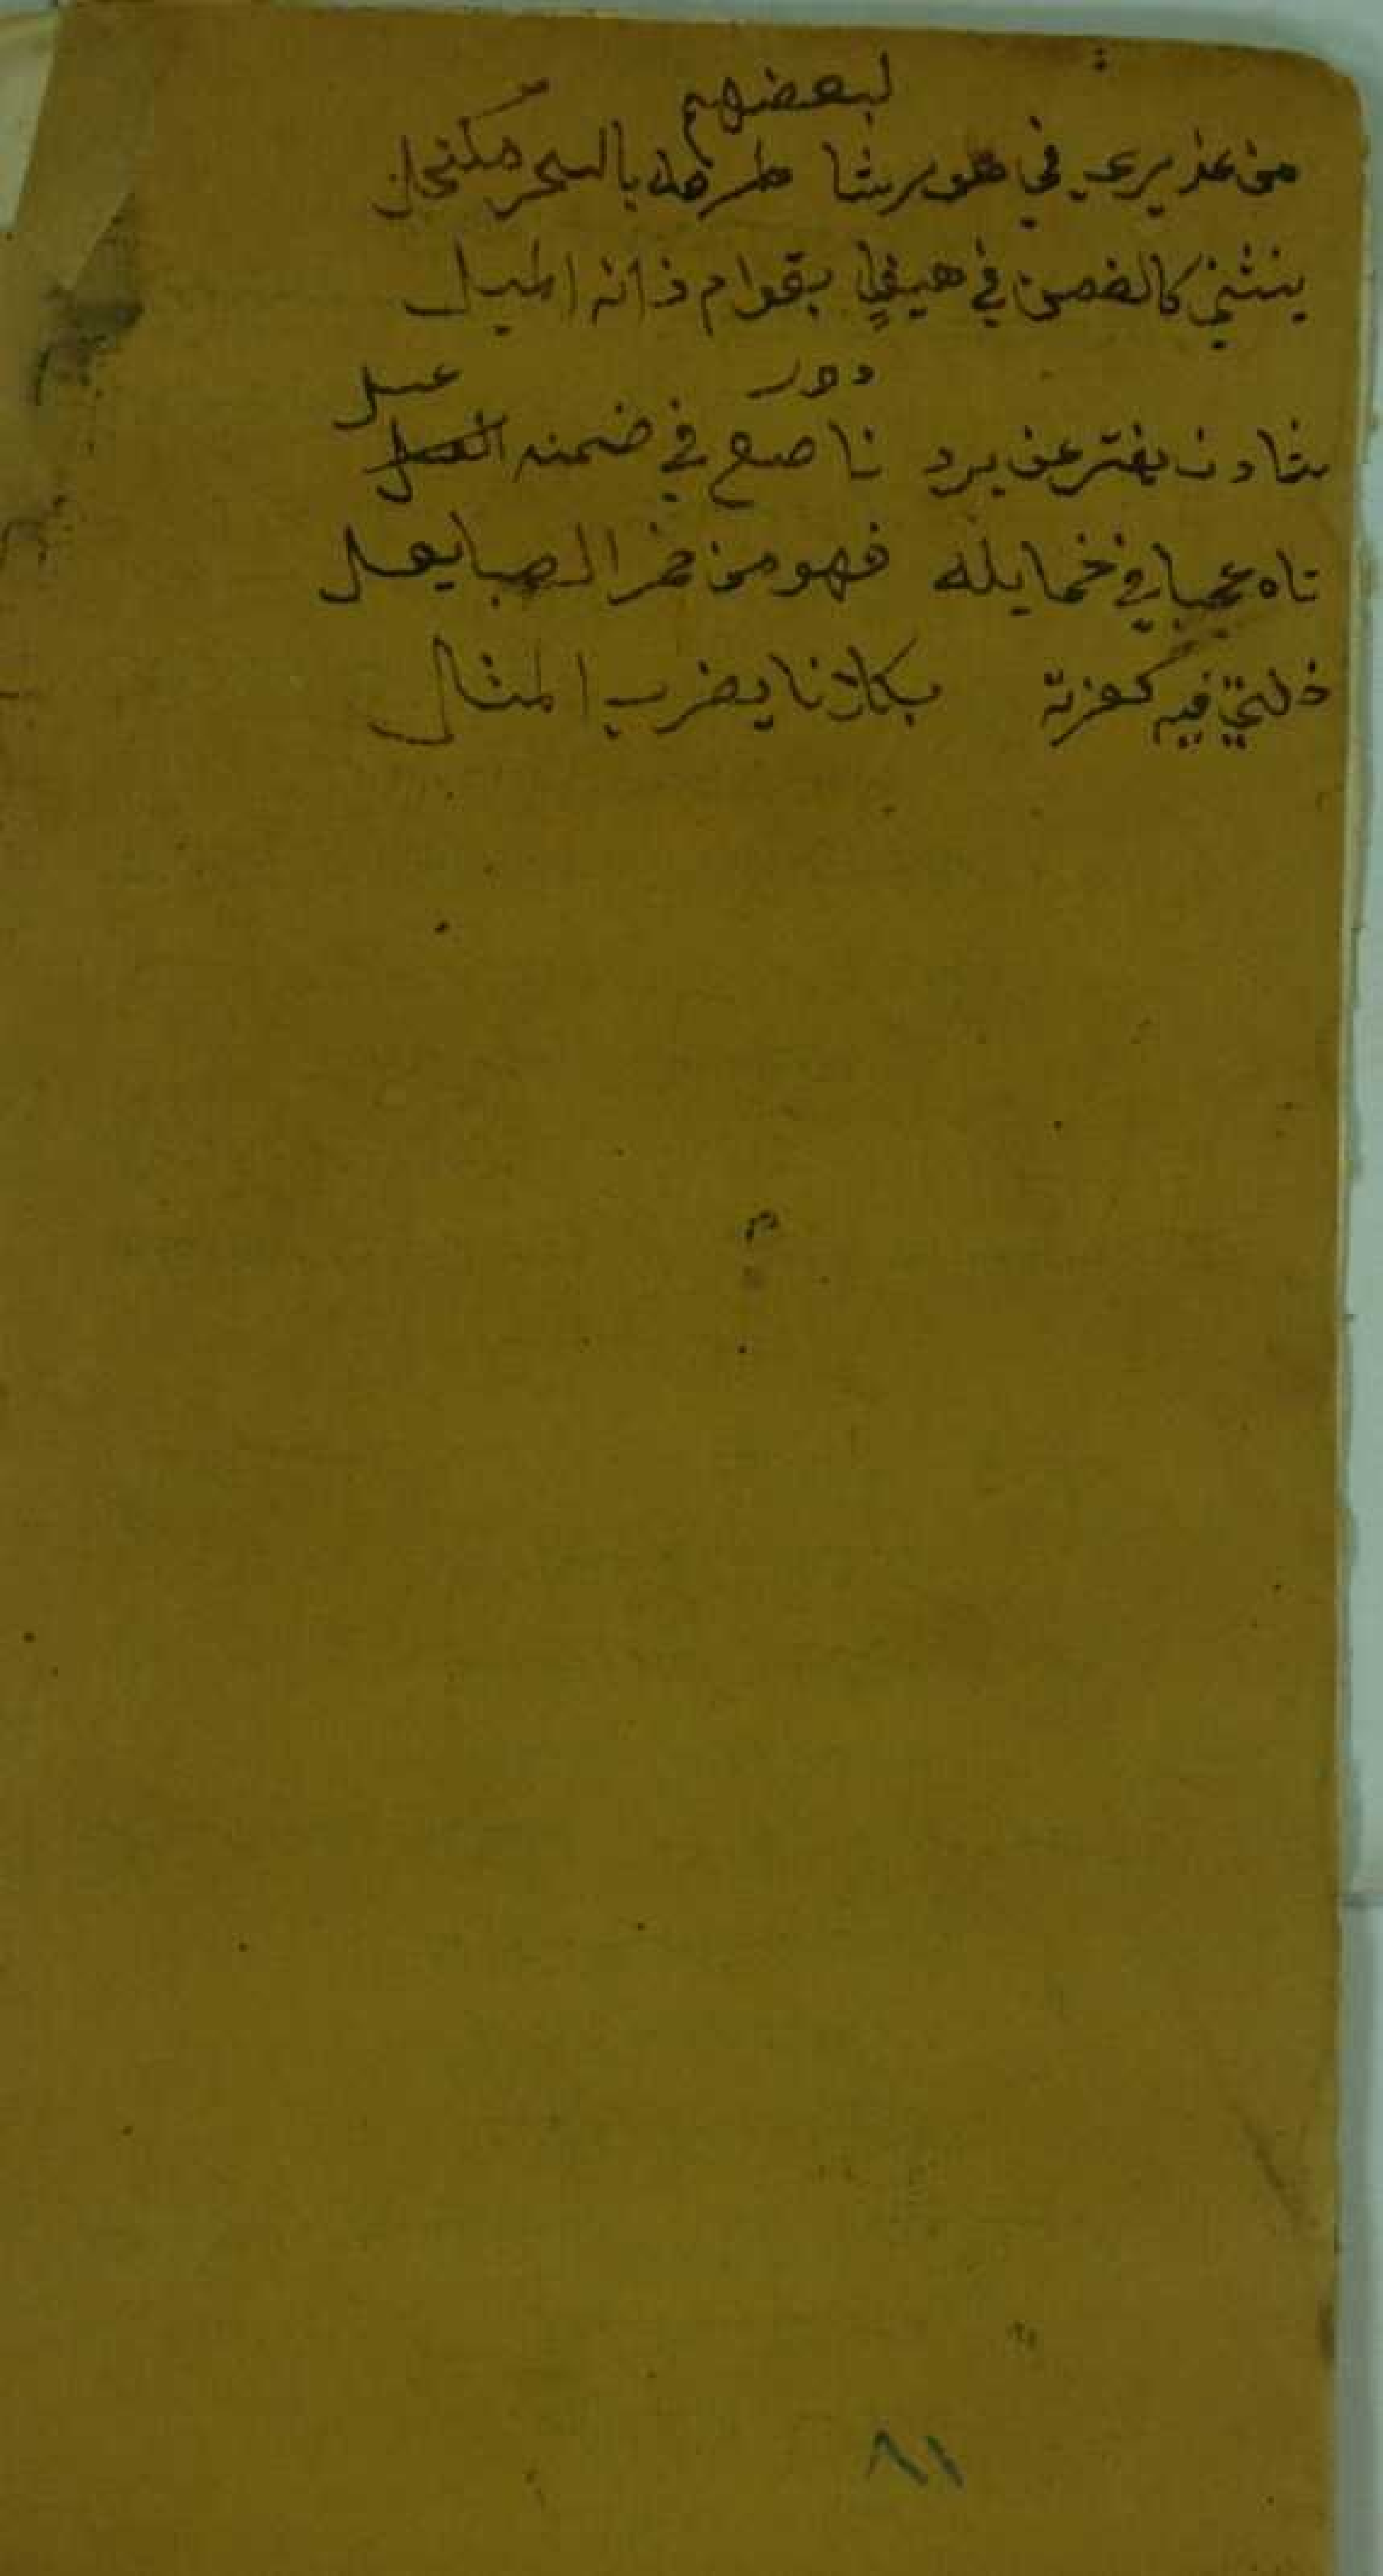 لبعضهم
من عذيري في هوى رشا طرفه بالسحر مكتحل
ينثني كالغصن في هيفٍ بقوام زانه الميل
دور
شادن يفتر عن برد ناصع في ضمنه العسل عسل
تاه عجبا في خمايله فهو من خمر الصبا يعل
ذلتي فيه كعزته بكلانا يضرب المثال
٨١